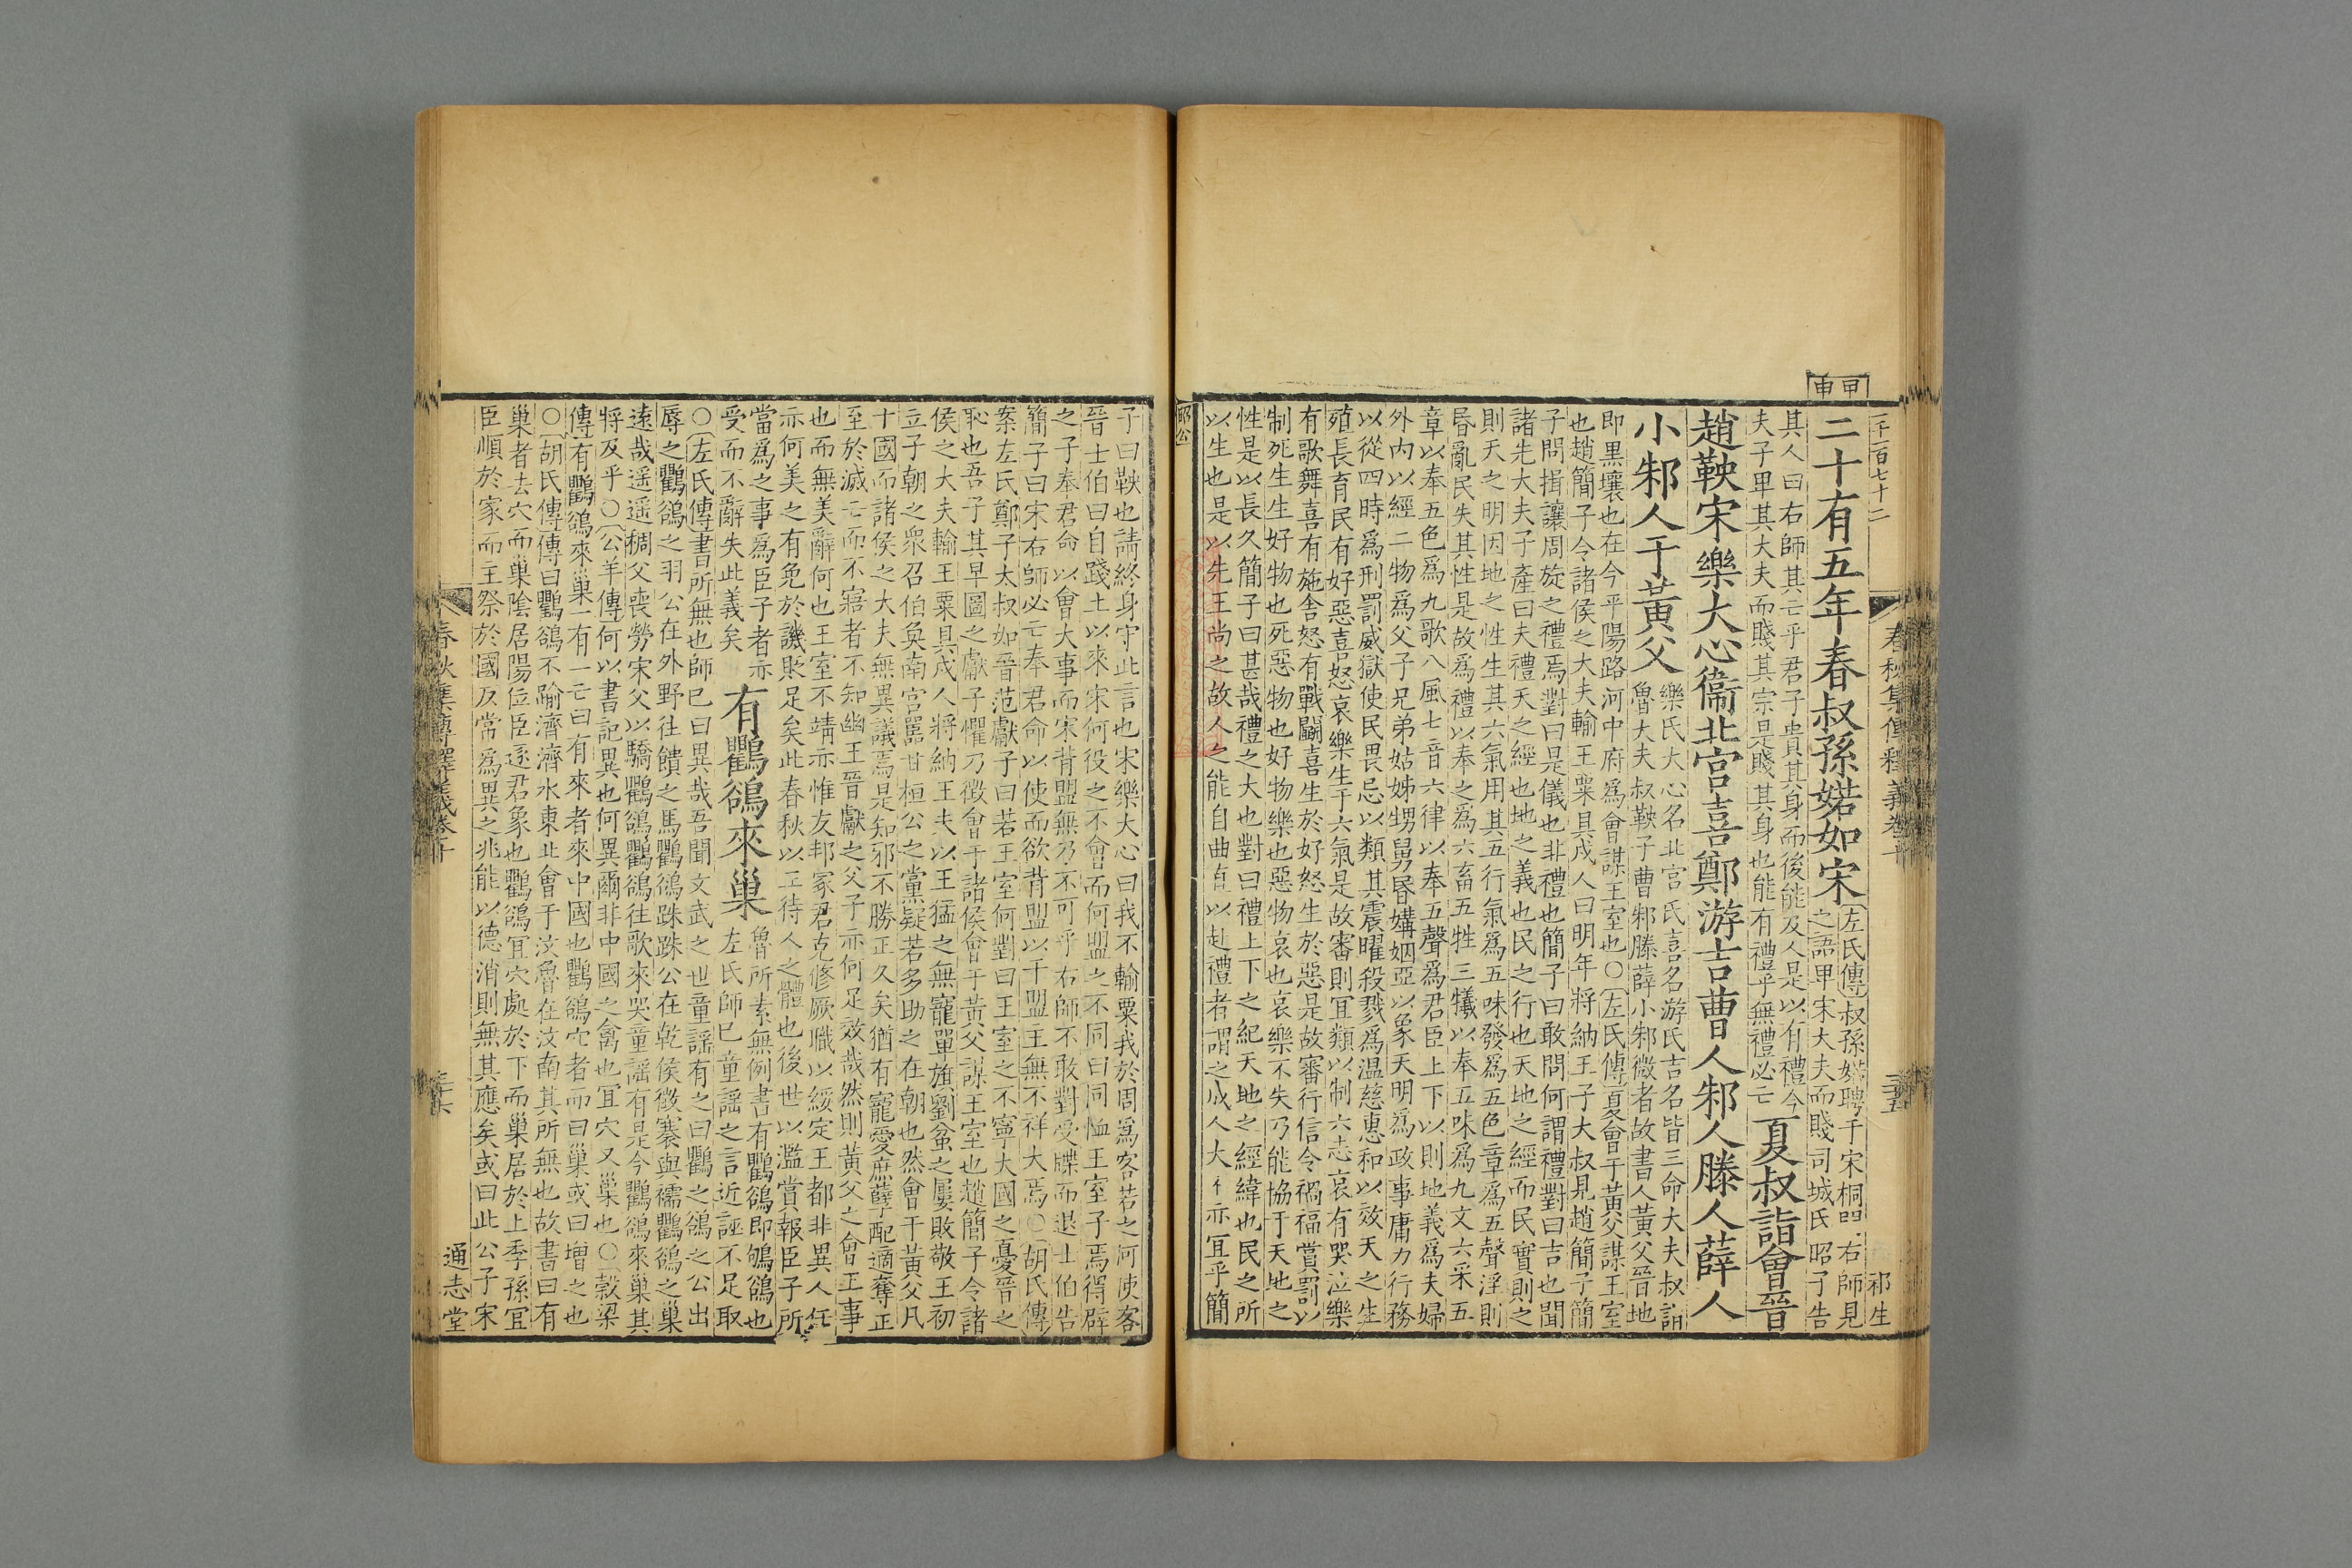 甲申
二十有五年春叔孫婼如宋
左氏傳叔孫婼聘于宋桐門右師見
之語卑宋大夫而賤司城氏昭子告
其人曰右師其亡乎君子貴其身而後能及人是以有禮今
夫子卑其大夫而賤其宗是賤其身也能有禮乎無禮必亡
夏叔詣會晉
趙鞅宋樂大心衞北宮喜鄭游吉曹人邾人滕人薛人
小邾人于黃父
樂氏大心名北宮氏喜名游氏吉名皆三命大夫叔詣
魯大夫叔鞅子曹邾滕薛小邾微者故書人黃父晉地
即黑壤也在今平陽路河中府爲會謀王室也○左氏傳夏會于黃父謀王室
也趙簡子令諸侯之大夫輸王粟具戍人曰明年將納王子大叔見趙簡子簡
子問揖讓周旋之禮焉對曰是儀也非禮也簡子曰敢問何謂禮對曰吉也聞
諸先大夫子產曰夫禮天之經也地之義也民之行也天地之經而民實則之
則天之明因地之性生其六氣用其五行氣爲五味發爲五色章爲五聲淫則
昏亂民失其性是故爲禮以奉之爲六畜五牲三犧以奉五味爲九文六采五
章以奉五色爲九歌八風七音六律以奉五聲爲君臣上下以則地義爲夫婦
外內以經二物爲父子兄弟姑姊甥舅昏媾姻亞以象天明爲政事庸力行務
以從四時爲刑罰威獄使民畏忌以類其震曜殺戮爲溫慈惠和以效天之生
殖長育民有好惡喜怒哀樂生于六氣是故審則宜類以制六志哀有哭泣樂
有歌舞喜有施舍怒有戰鬬喜生於好怒生於惡是故審行信令禍福賞罰以
制死生生好物也死惡物也好物樂也惡物哀也哀樂不失乃能協于天地之
性是以長久簡子曰甚哉禮之大也對曰禮上下之紀天地之經緯也民之所
以生也是以先王尚之故人之能自曲直以赴禮者謂之成人大不亦宜乎簡
一千一百七十二
春秋集傳釋義卷十
三十五
祁生
昭公
子曰鞅也請終身守此言也宋樂大心曰我不輸粟我於周爲客若之何使客
晉士伯曰自踐土以來宋何役之不會而何盟之不同曰同恤王室子焉得辟
之子奉君命以會大事而宋背盟無乃不可乎右師不敢對受牒而退士伯告
簡子曰宋右師必亡奉君命以使而欲背盟以干盟主無不祥大焉○胡氏傳
案左氏鄭子太叔如晉范獻子曰若王室何對曰王室之不寧大國之憂晉之
恥也吾子其早圖之獻子懼乃徵會于諸侯會于黃父謀王室也趙簡子令諸
侯之大夫輸王粟具戍人將納王夫以王猛之無寵單旗劉蚠之屢敗敬王初
立子朝之衆召伯奐南宮嚚甘桓公之黨疑若多助之在朝也然會于黃父凡
十國而諸侯之大夫無異議焉是知邪不勝正久矣猶有寵愛庶孽配適奪正
至於滅亡而不寤者不知幽王晉獻之父子亦何足效哉然則黃父之會王事
也而無美辭何也王室不靖亦惟友邦冢君克修厥職以綏定王都非異人任
亦何美之有免於譏貶足矣此春秋以正待人之體也後世以濫賞報臣子所
當爲之事爲臣子者亦
受而不辭失此義矣
有鸜鵒來巢
魯所素無例書有鸜鵒即鴝鵒也
左氏師巳童謠之言近誣不足取
○左氏傳書所無也師巳曰異哉吾聞文武之世童謠有之曰鸜之鵒之公出
辱之鸜鵒之羽公在外野往饋之馬鸜鵒跦跦公在乾侯徵褰與襦鸜鵒之巢
遠哉遥遥稠父喪勞宋父以驕鸜鵒鸜鵒往歌來哭童謠有是今鸜鵒來巢其
將及乎○公羊傳何以書記異也何異爾非中國之禽也宜穴又巢也○穀梁
傳有鸜鵒來巢一有一亡曰有來者來中國也鸜鵒穴者而曰巢或曰增之也
○胡氏傳傳曰鸜鵒不踰濟濟水東北會于汶魯在汶南其所無也故書曰有
巢者去穴而巢陰居陽位臣逐君象也鸜鵒宜穴處於下而巢居於上季孫宜
臣順於家而主祭於國反常爲異之兆能以德消則無其應矣或曰此公子宋
春秋集傳釋義卷十
三十六
通志堂